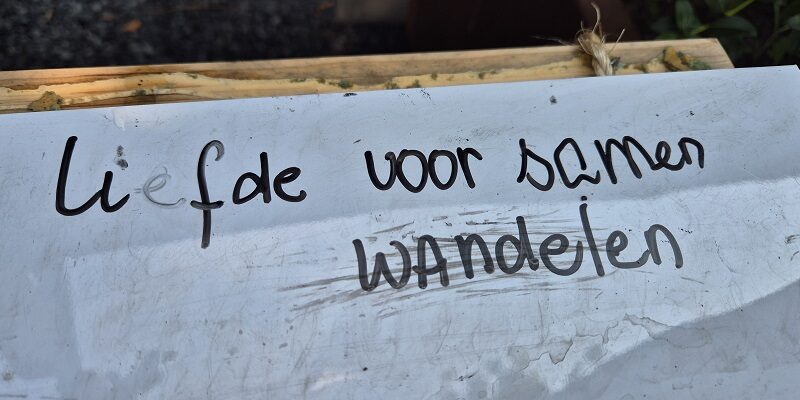 Liefde voor samen
wandelen